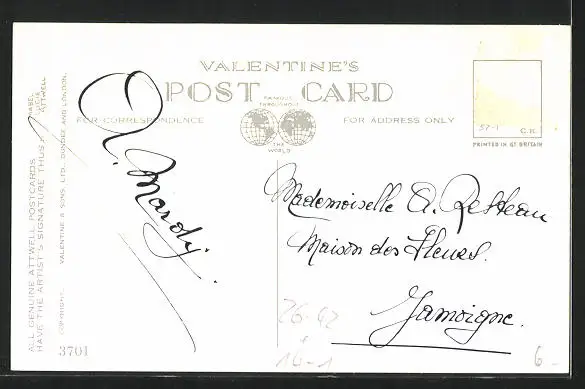 VALENTINE'S
POST CARD
FAMOUS
THROUGHOUT
THE
WORLD
FOR CORRESPONDENCE
FOR ADDRESS ONLY
57-1
C.H.
PRINTED IN GT BRITAIN
ALL GENUINE ATTWELL POSTCARDS
HAVE THE ARTIST'S SIGNATURE THUS
MABEL
LUCIE
ATTWELL
COPYRIGHT.
VALENTINE & SONS. LTD., DUNDEE AND LONDON.
3701
Mardy
Mademoiselle A.
Maison des Fleurs.
Jamoigne.
26-42
14-1
6-